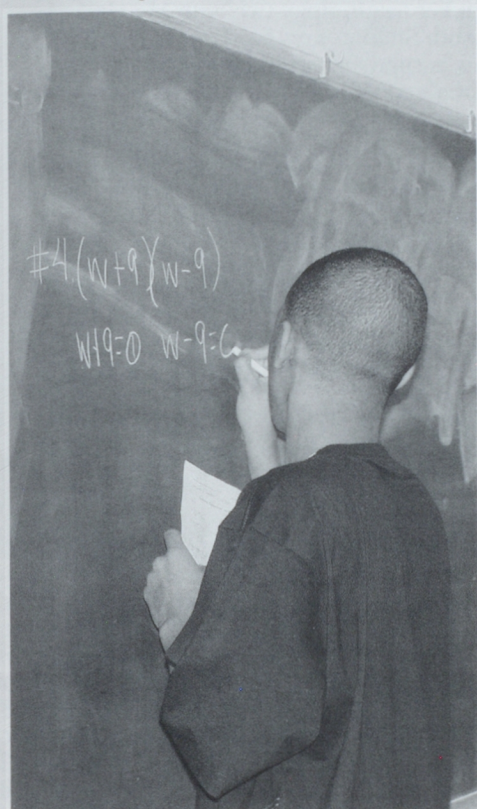 #4 (w+9)(w-9)
w+9=0 w-9=0